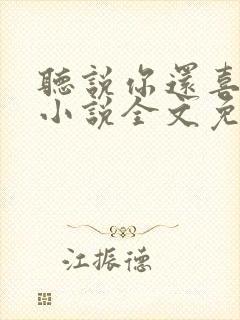 聽說你還喜
小說全文免
江振德